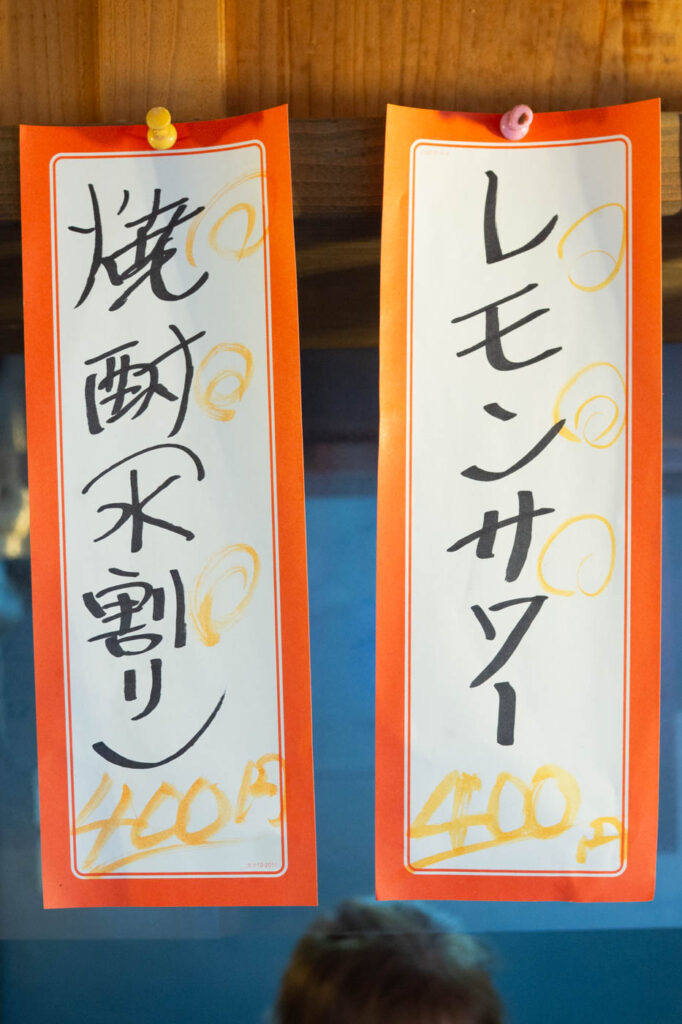 レモンサワー
400円
焼酎（水割り）
400円